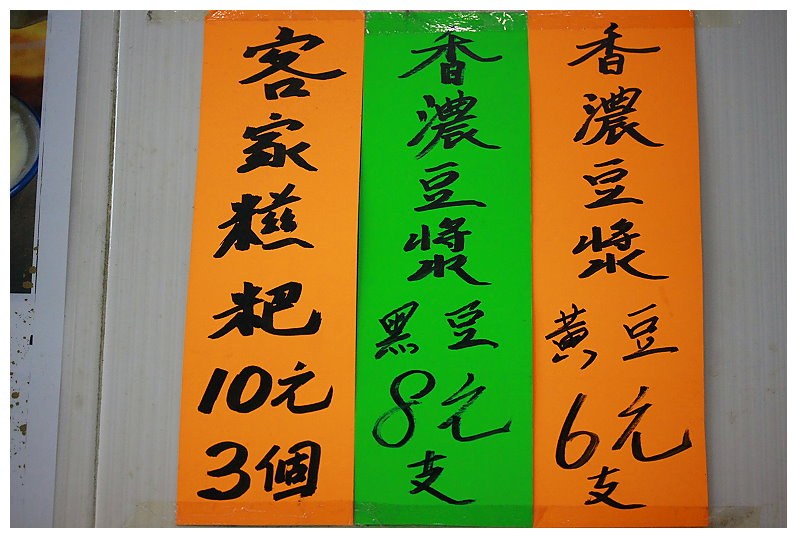 客家糍粑
10元
3個
香濃豆漿
黑豆
8元
支
香濃豆漿
黃豆
6元
支